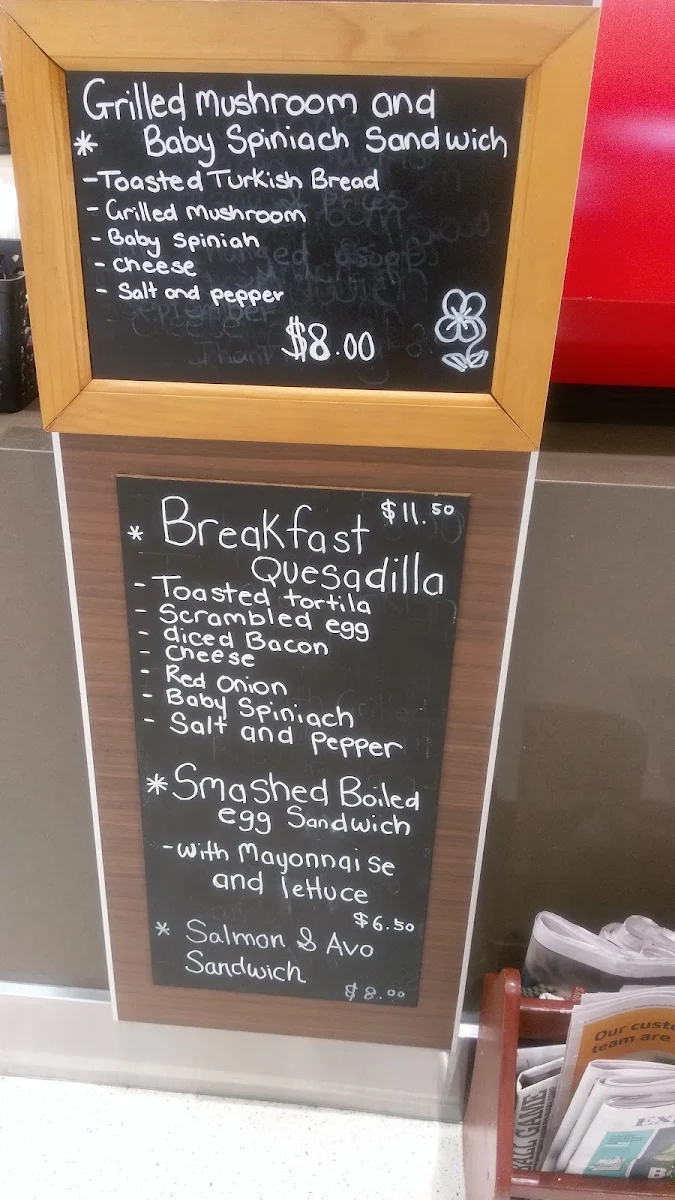 Grilled Mushroom and
* Baby Spiniach Sandwich
- Toasted Turkish Bread
- Grilled Mushroom
- Baby Spiniah
- Cheese
- Salt and pepper
$8.00
$11.50
* Breakfast
Quesadilla
- Toasted tortila
- Scrambled egg
- diced Bacon
- Cheese
- Red Onion
- Baby Spiniach
- Salt and Pepper
* Smashed Boiled
egg Sandwich
- with Mayonnaise
and lettuce
$6.50
* Salmon & Avo
Sandwich
$8.00
Our custo
team are
BALL GAME
EX